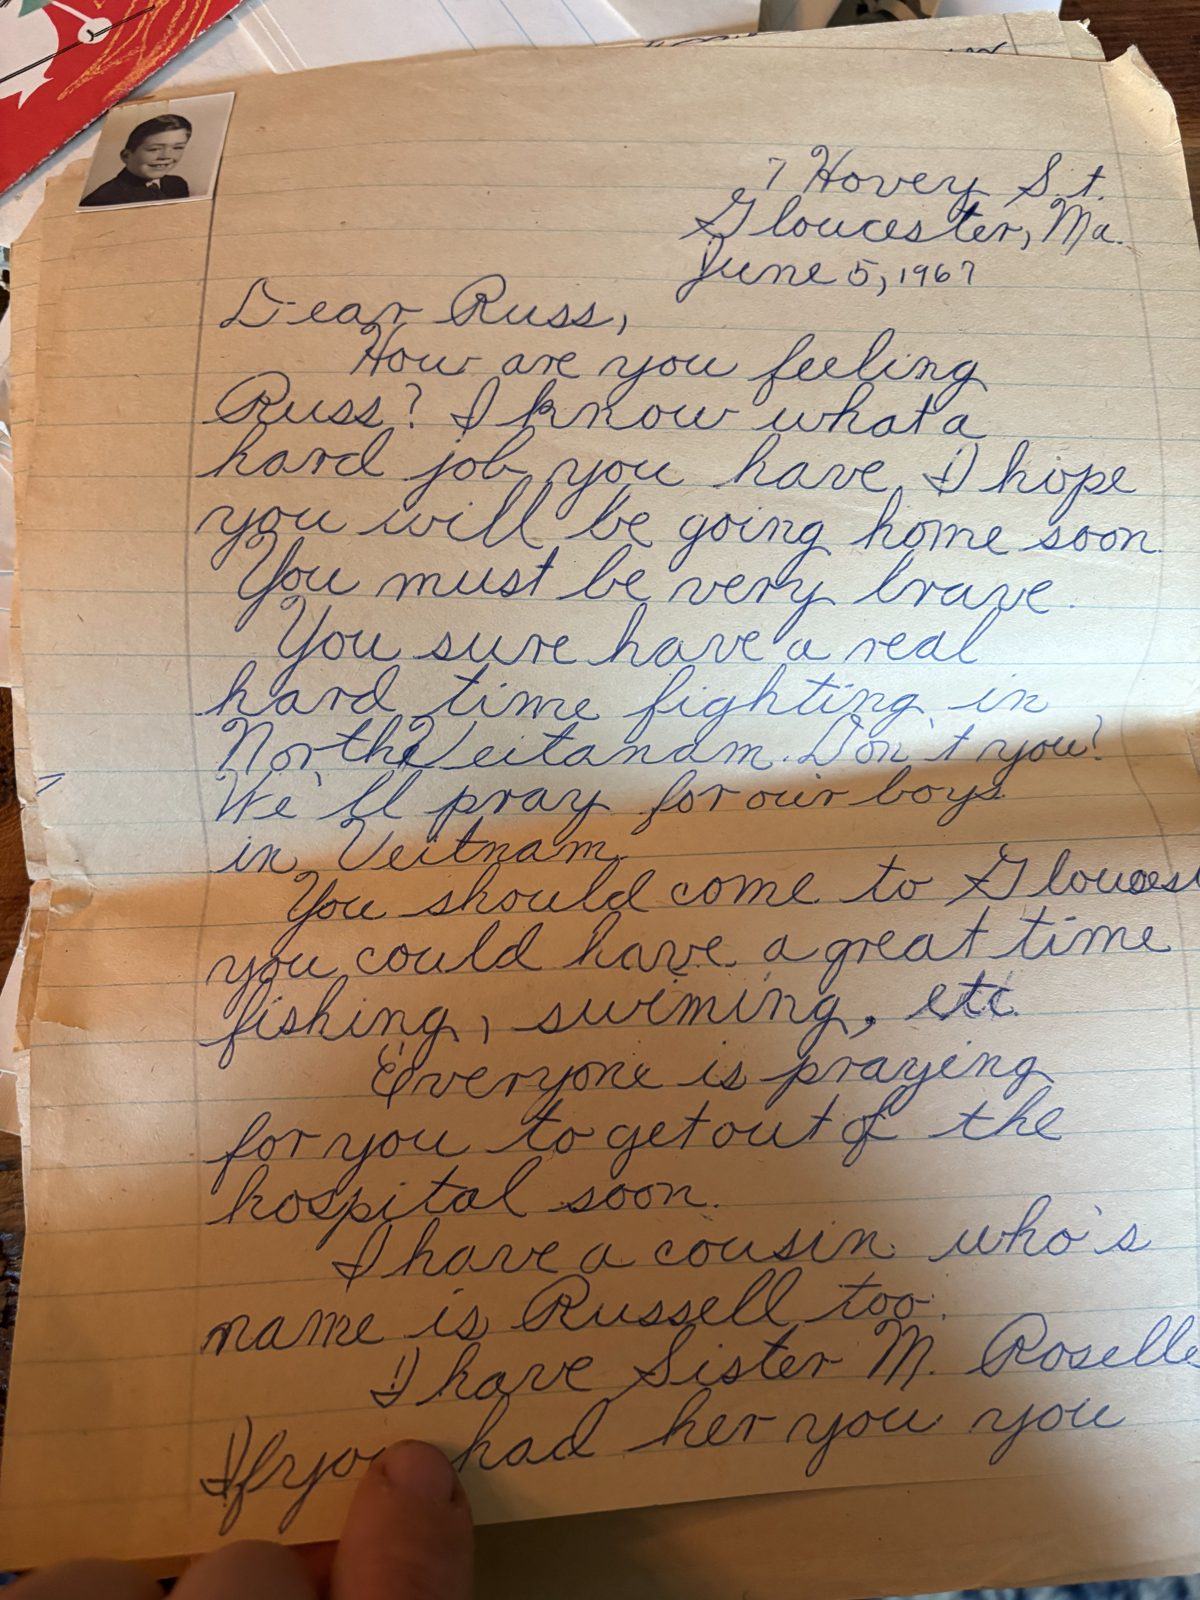 7 Hovey St.
Gloucester, Ma.
June 5, 1967
Dear Russ,
How are you feeling
Russ? I know what a
hard job you have I hope
you will be going home soon.
You must be very brave.
You sure have a real
hard time fighting in
North Veitanam. Don't you?
We'll pray for our boys
in Veitnam.
You should come to
you could have a great time
fishing, swiming, etc.
Everyone is praying
for you to get out of the
hospital soon.
I have a cousin who's
name is Russell too.
I have Sister M. Roselle
If you had her you you